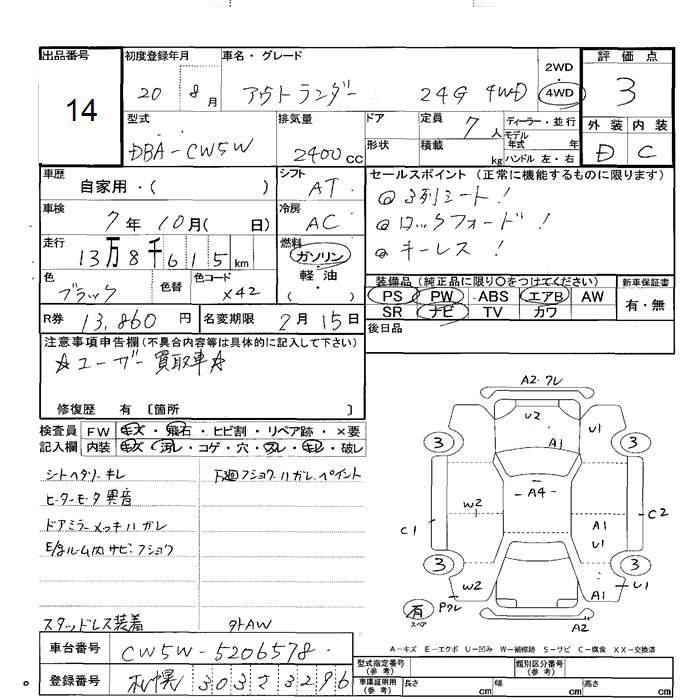 出品番号 初度登録年月 車名・グレード 2WD 評価点
14 20 8月 アウトランダー 24G 4WD ・ 4WD 3
型式 排気量 ドア 定員 7人 ディーラー・並行 外装 内装
DBA-CW5W 2400cc 形状 積載 kg モデル年式 年 D C
ハンドル 左・右
車歴 シフト セールスポイント (正常に機能するものに限ります)
自家用・( ) AT 3列シート!
車検 7年10月( 日) 冷房 AC ロックフォード!
走行 13万8千615km 燃料 ガソリン キーレス!
軽油
( )
色 ブラック 色替 色コード X42 装備品 (純正品に限り〇をつけてください) 新車保証書
PS PW ABS エアB AW 有・無
R券 13,860円 名変期限 2月15日 SR ナビ TV カワ
注意事項申告欄 (不具合内容等は具体的に記入して下さい) 後日品
☆ユーザー買取車☆
修復歴 有 〔箇所 〕
検査員 FW キズ・飛石・ヒビ割・リペア跡・×要
記入欄 内装 キズ・汚レ・コゲ・穴・スレ・キレ・破レ
シートヘタリ・キレ 下廻フショクハガレ、ペイント
ヒーターモータ異音
ドアミラーメッキハガレ
E/gルーム内サビ・フショク
スタッドレス装着 外AW
A2・ワレ
U2 U1
A1
3 3
A4
W2
C1 A1 C2
U1
3 3
W2 U1
有 Pワレ A1
スペア A2
A-キズ E-エクボ U-凹み W-補修跡 S-サビ C-腐食 XX-交換済
車台番号 CW5W-5206578 型式指定番号 (参考) 類別区分番号 (参考)
登録番号 札幌 303さ3296 車庫証明用 (参考) 長さ cm 幅 cm 高さ cm